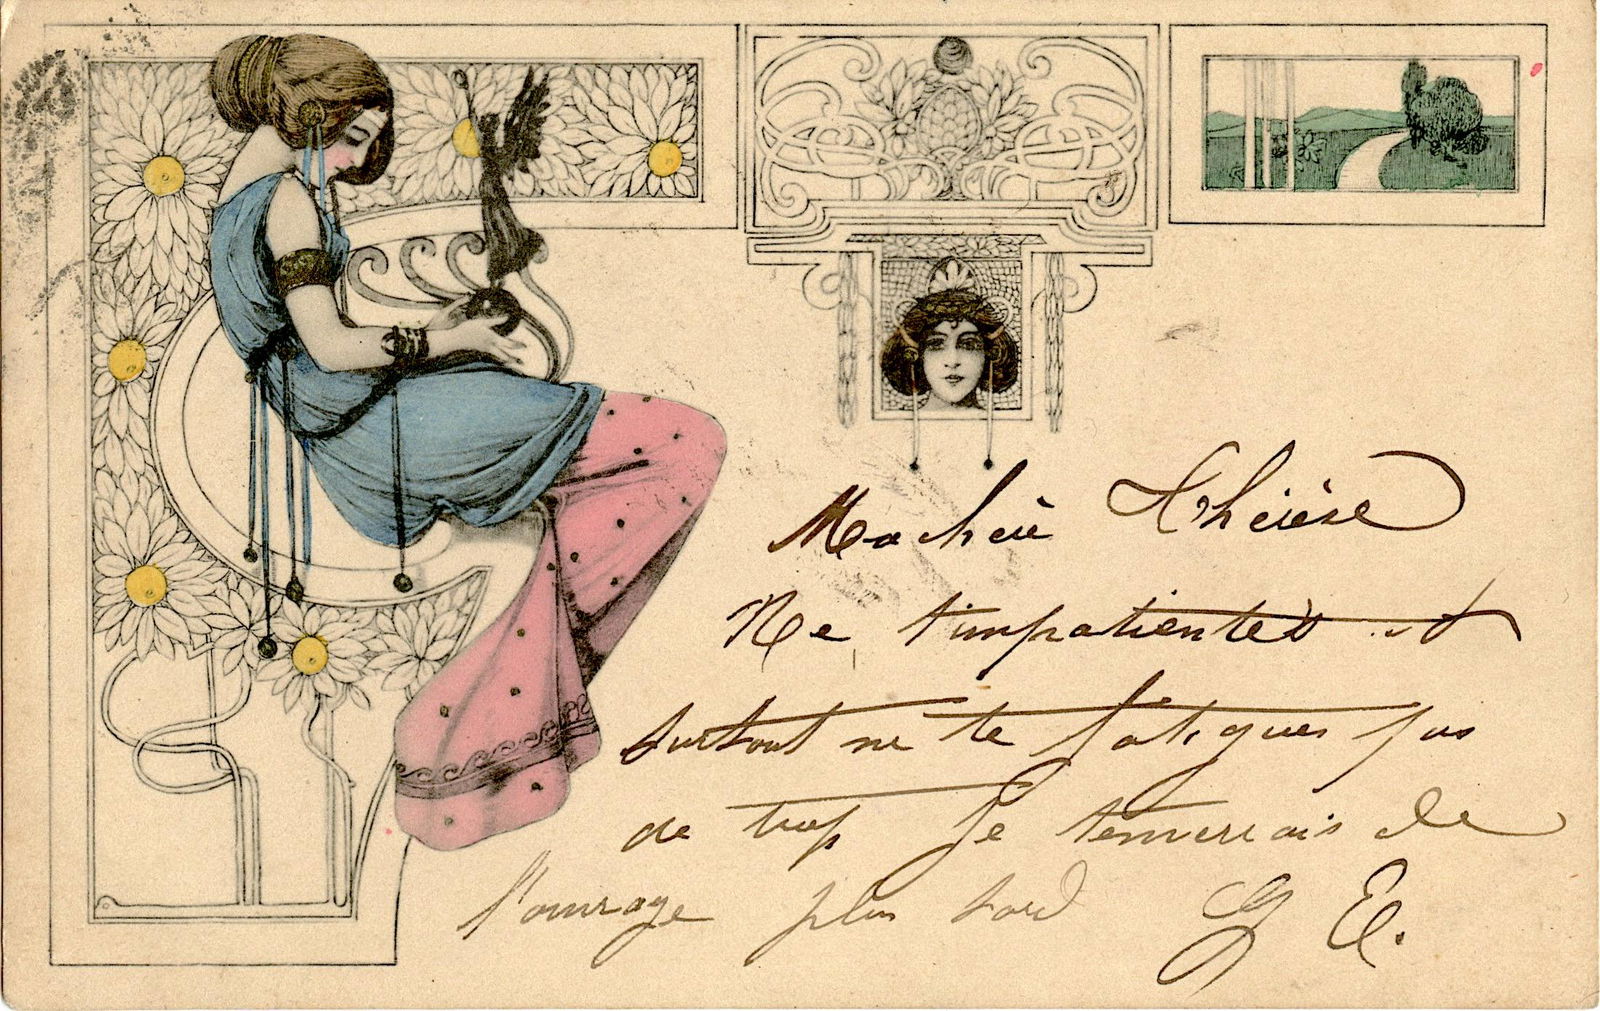 Ma chère Thérèse
Ne t'impatientes et
surtout ne te fatigues pas
de trop Je t'enverrais de
l'ouvrage plus tard G E.